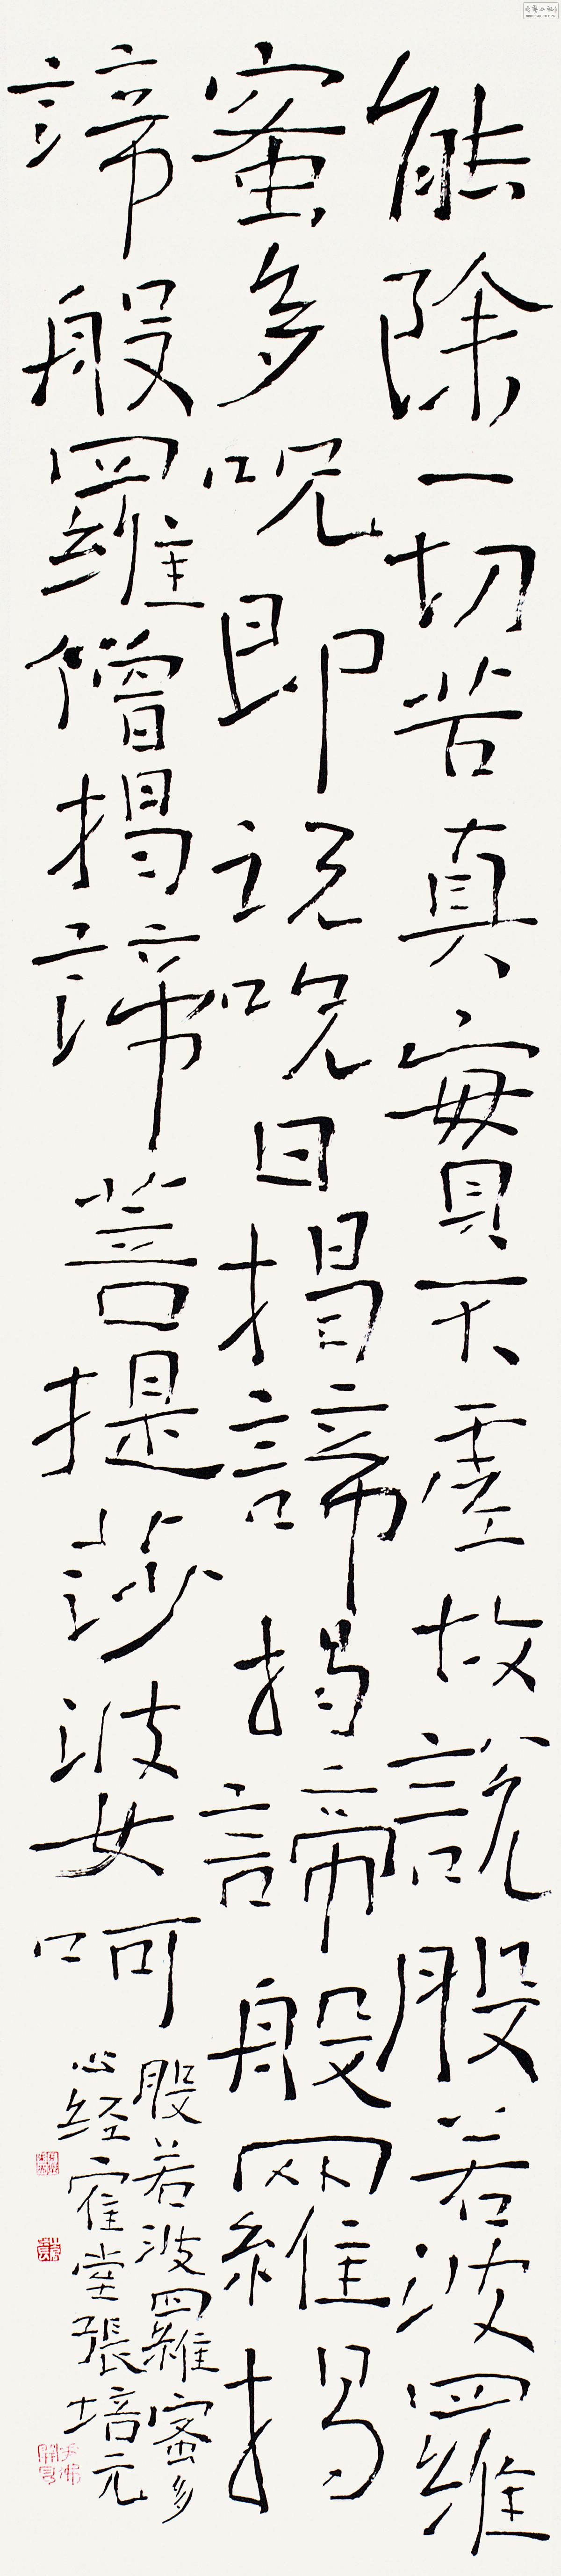 能除一切苦真實不虛故說般若波羅
蜜多呪即说呪曰揭諦揭諦般羅揭
諦般羅僧揭諦菩提莎婆呵
般若波羅蜜多
心经寉堂張培元